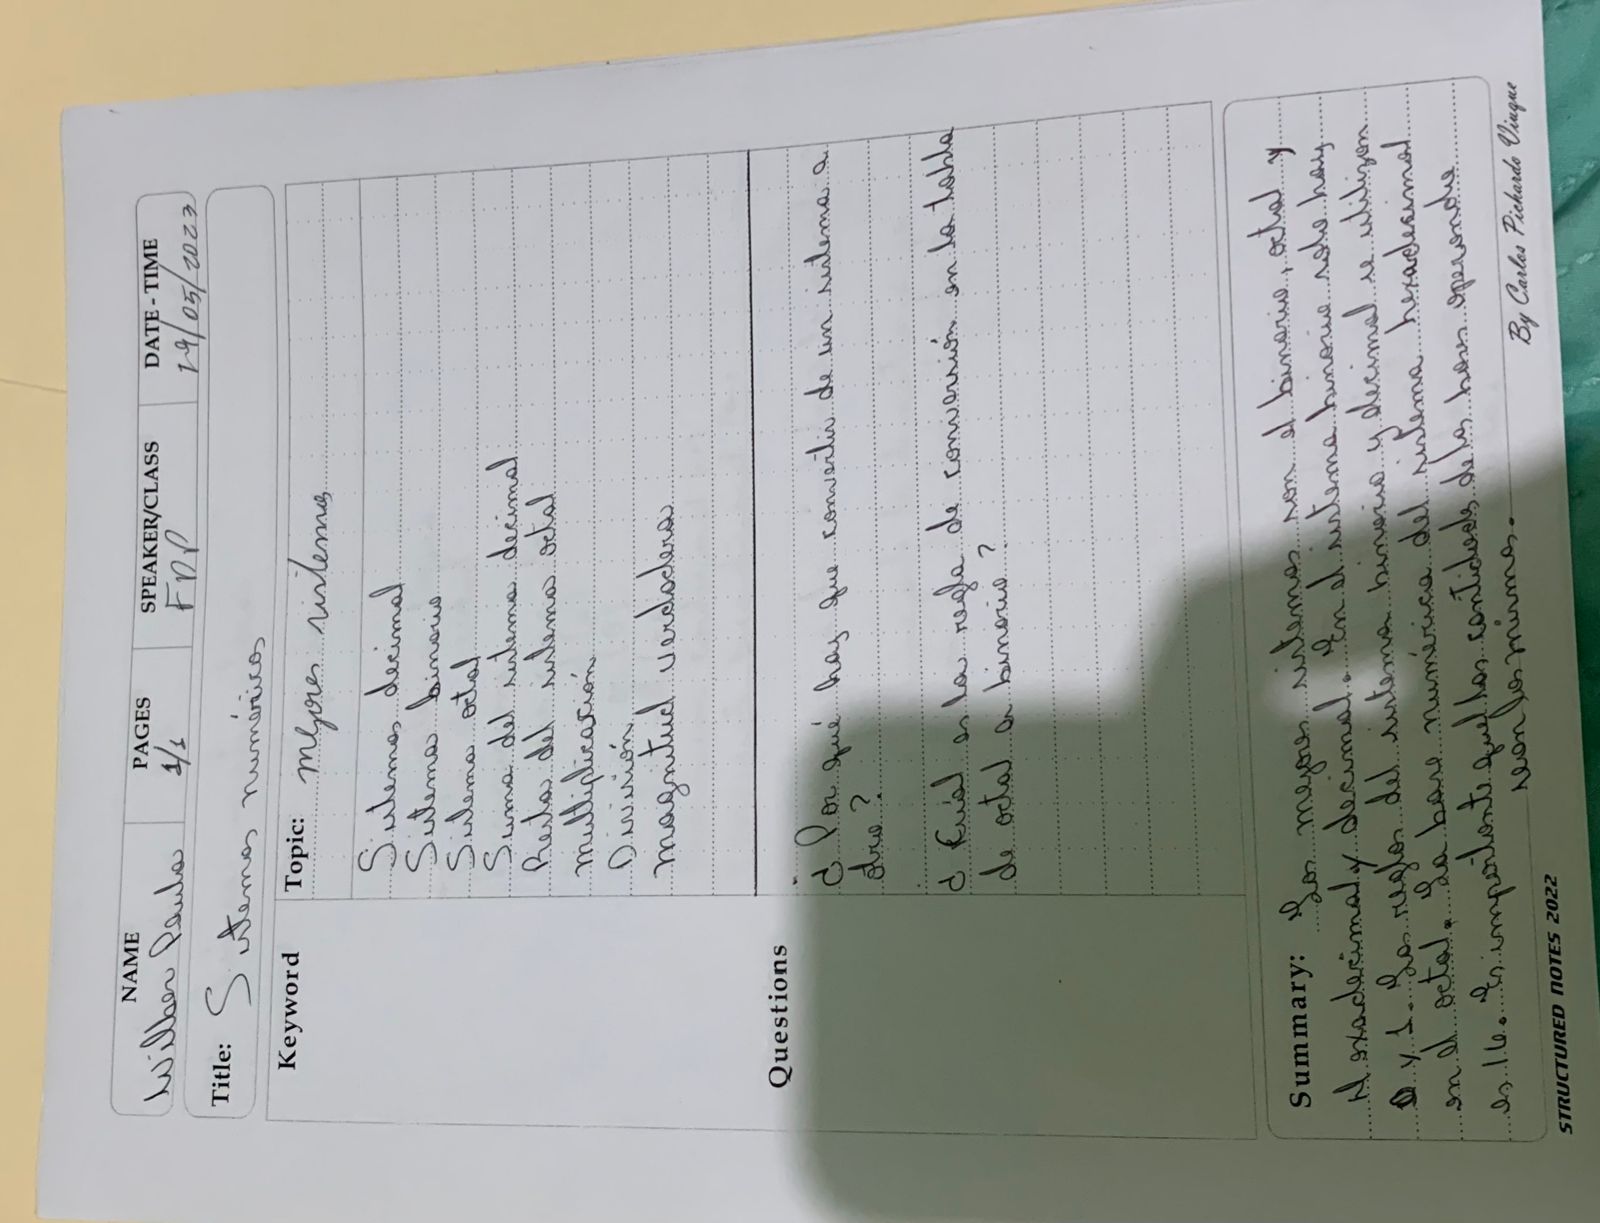 NAME PAGES SPEAKER/CLASS DATE - TIME
Wilber Paula 1/1 FDP 29/05/2023
Title: Sistemas numéricos
Keyword
Topic: mejores sistemas
Sistemas decimal
Sistema binario
Sistema octal
Suma del sistema decimal
Resta del sistema octal
Multiplicación
División
Magnitud verdadera
Questions
¿Por qué hay que convertir de un sistema a
otro?
¿Cuál es la regla de conversión en la tabla
de octal a binario?
Summary: Los mejores sistemas son el binario, octal y
Hexadecimal y decimal. En el sistema binario solo hay
0 y 1. Las reglas del sistema binario y decimal se utilizan
en el octal. La base numérica del sistema hexadecimal
es 16. Es importante que las cantidades de las bases operando
sean las mismas.
STRUCTURED NOTES 2022
By Carlos Pichardo Viuque